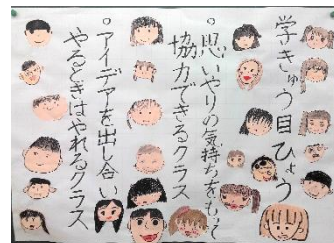 学きゅう目ひょう
。思いやりの気持ちをもって
協力できるクラス
。アイデアを出し合い
やるときはやれるクラス